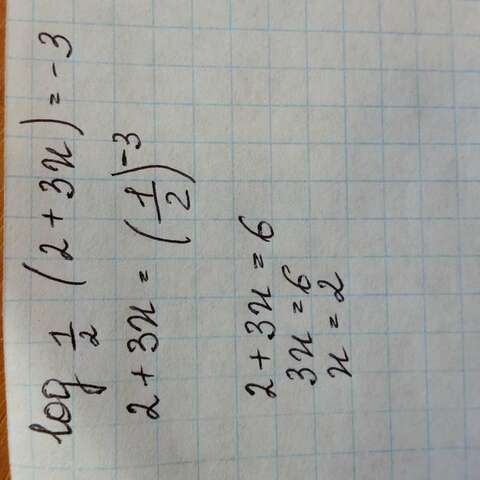 log 1/2 (2 + 3x) = -3
2 + 3x = (1/2)^-3
2 + 3x = 6
3x = 6
x = 2